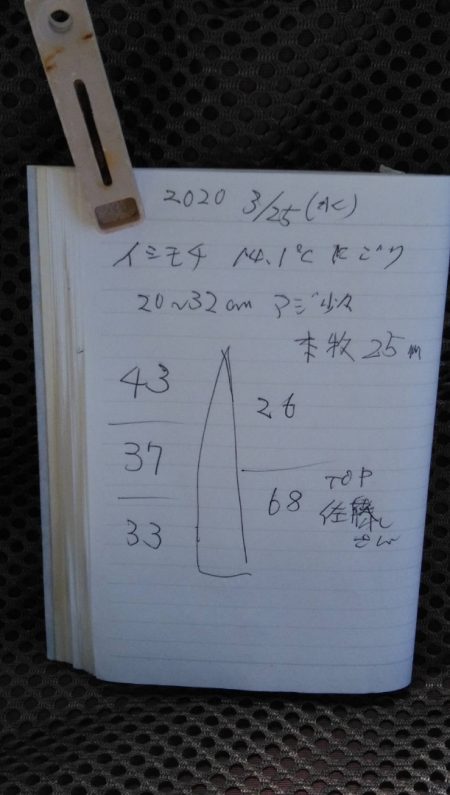 2020 3/25(水)
イシモチ 14.1℃ にごり
20~32cm アジ少々
本牧25m
43
26
37
68 TOP
佐藤
さん
33